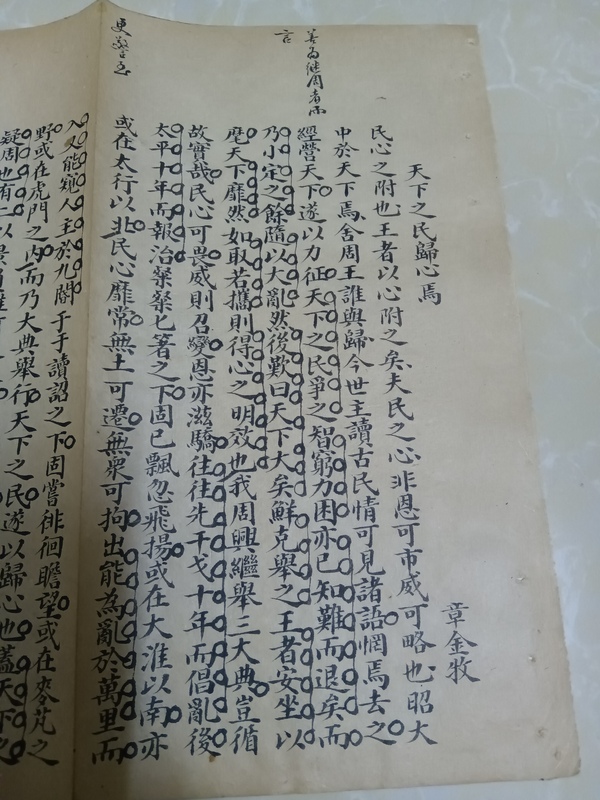 善為繼周者而
言
天下之民歸心焉
章金牧
民心之附也王者以心附之矣夫民之心非恩可市威可略也昭大
中於天下焉舍周王誰與歸今世主讀古民情可見諸語惘焉去之
經營天下遂以力征天下之民爭之智窮力困亦已知難而退矣而
乃小定之餘隨以大亂然後歎曰天下大矣鮮克舉之王者安坐以
麾天下靡然如取若攜則得心之明效也我周興繼舉三大典豈循
故實哉民心可畏威則召變恩亦滋驕往往先干戈十年而倡亂後
太平十年而報治粲粲匕箸之下固已飄忽飛揚或在大淮以南亦
或在太行以北民心靡常無土可遷無衆可拘出能為亂於萬里而
入又能窺人主於九閽于于讀詔之下固嘗徘徊瞻望或在麥芃之
野或在虎門之內而乃大典舉行天下之民遂以歸心也蓋天下之
疑周也有二以